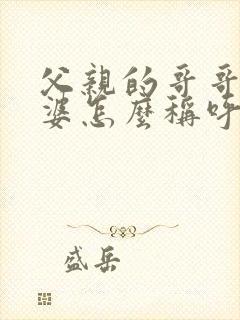 父親的哥哥
婆怎麼稱呼
盛岳